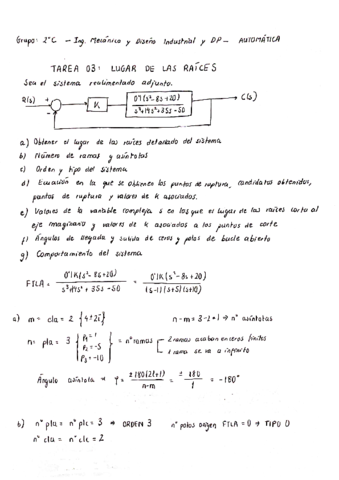 Grupo: 2ºC - Ing. Mecánica y Diseño Industrial y DP - AUTOMÁTICA
TAREA 03: LUGAR DE LAS RAÍCES
Sea el sistema realimentado adjunto.
R(s) + - K 0'1(s²-8s+20) / s³+14s²+35s-50 C(s)
a) Obtener el lugar de las raíces detallado del sistema
b) Número de ramas y asíntotas
c) Orden y tipo del sistema
d) Ecuación en la que se obtienen los puntos de ruptura, candidatos obtenidos,
puntos de ruptura y valores de k asociados.
e) Valores de la variable compleja s en los que el lugar de las raíces corta al
eje imaginario y valores de k asociados a los puntos de corte
f) Ángulos de llegada y salida de ceros y polos de bucle abierto
g) Comportamiento del sistema
FTLA = 0'1K(s²-8s+20) / s³+14s²+35s-50 = 0'1K(s²-8s+20) / (s-1)(s+5)(s+10)
a) m = cla = 2 {4±2i} n-m = 3-2=1 → nº asíntotas
n = pla = 3 { P₁=1 P₂=-5 P₃=-10 } = nº ramas 2 ramas acaban en ceros finitos
1 rama se va a infinito
Ángulo asíntota → φ = ±180(2q+1) / n-m = ±180 / 1 = -180º
b) nº pla = nº plc = 3 → ORDEN 3 nº polos origen FTLA = 0 → TIPO 0
nº cla = nº clc = 2